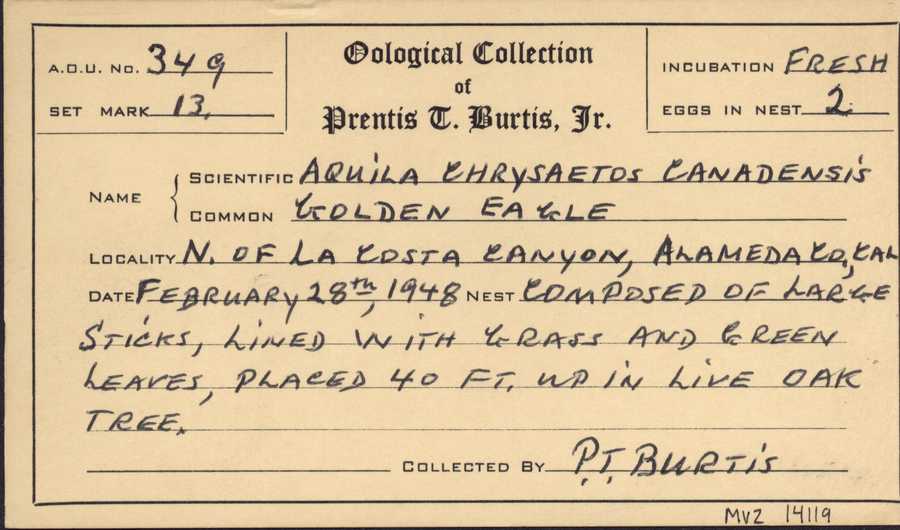 A.O.U. No. 349
SET MARK 13.
Oological Collection
of
Prentis T. Burtis, Jr.
INCUBATION FRESH
EGGS IN NEST 2
NAME
SCIENTIFIC AQUILA CHRYSAETOS CANADENSIS
COMMON GOLDEN EAGLE
LOCALITY N. OF LA COSTA CANYON, ALAMEDA CO, CAL
DATE FEBRUARY 28th, 1948 NEST COMPOSED OF LARGE
STICKS, LINED WITH GRASS AND GREEN
LEAVES, PLACED 40 FT. UP IN LIVE OAK
TREE.
COLLECTED BY P.T. BURTIS
MVZ 14119